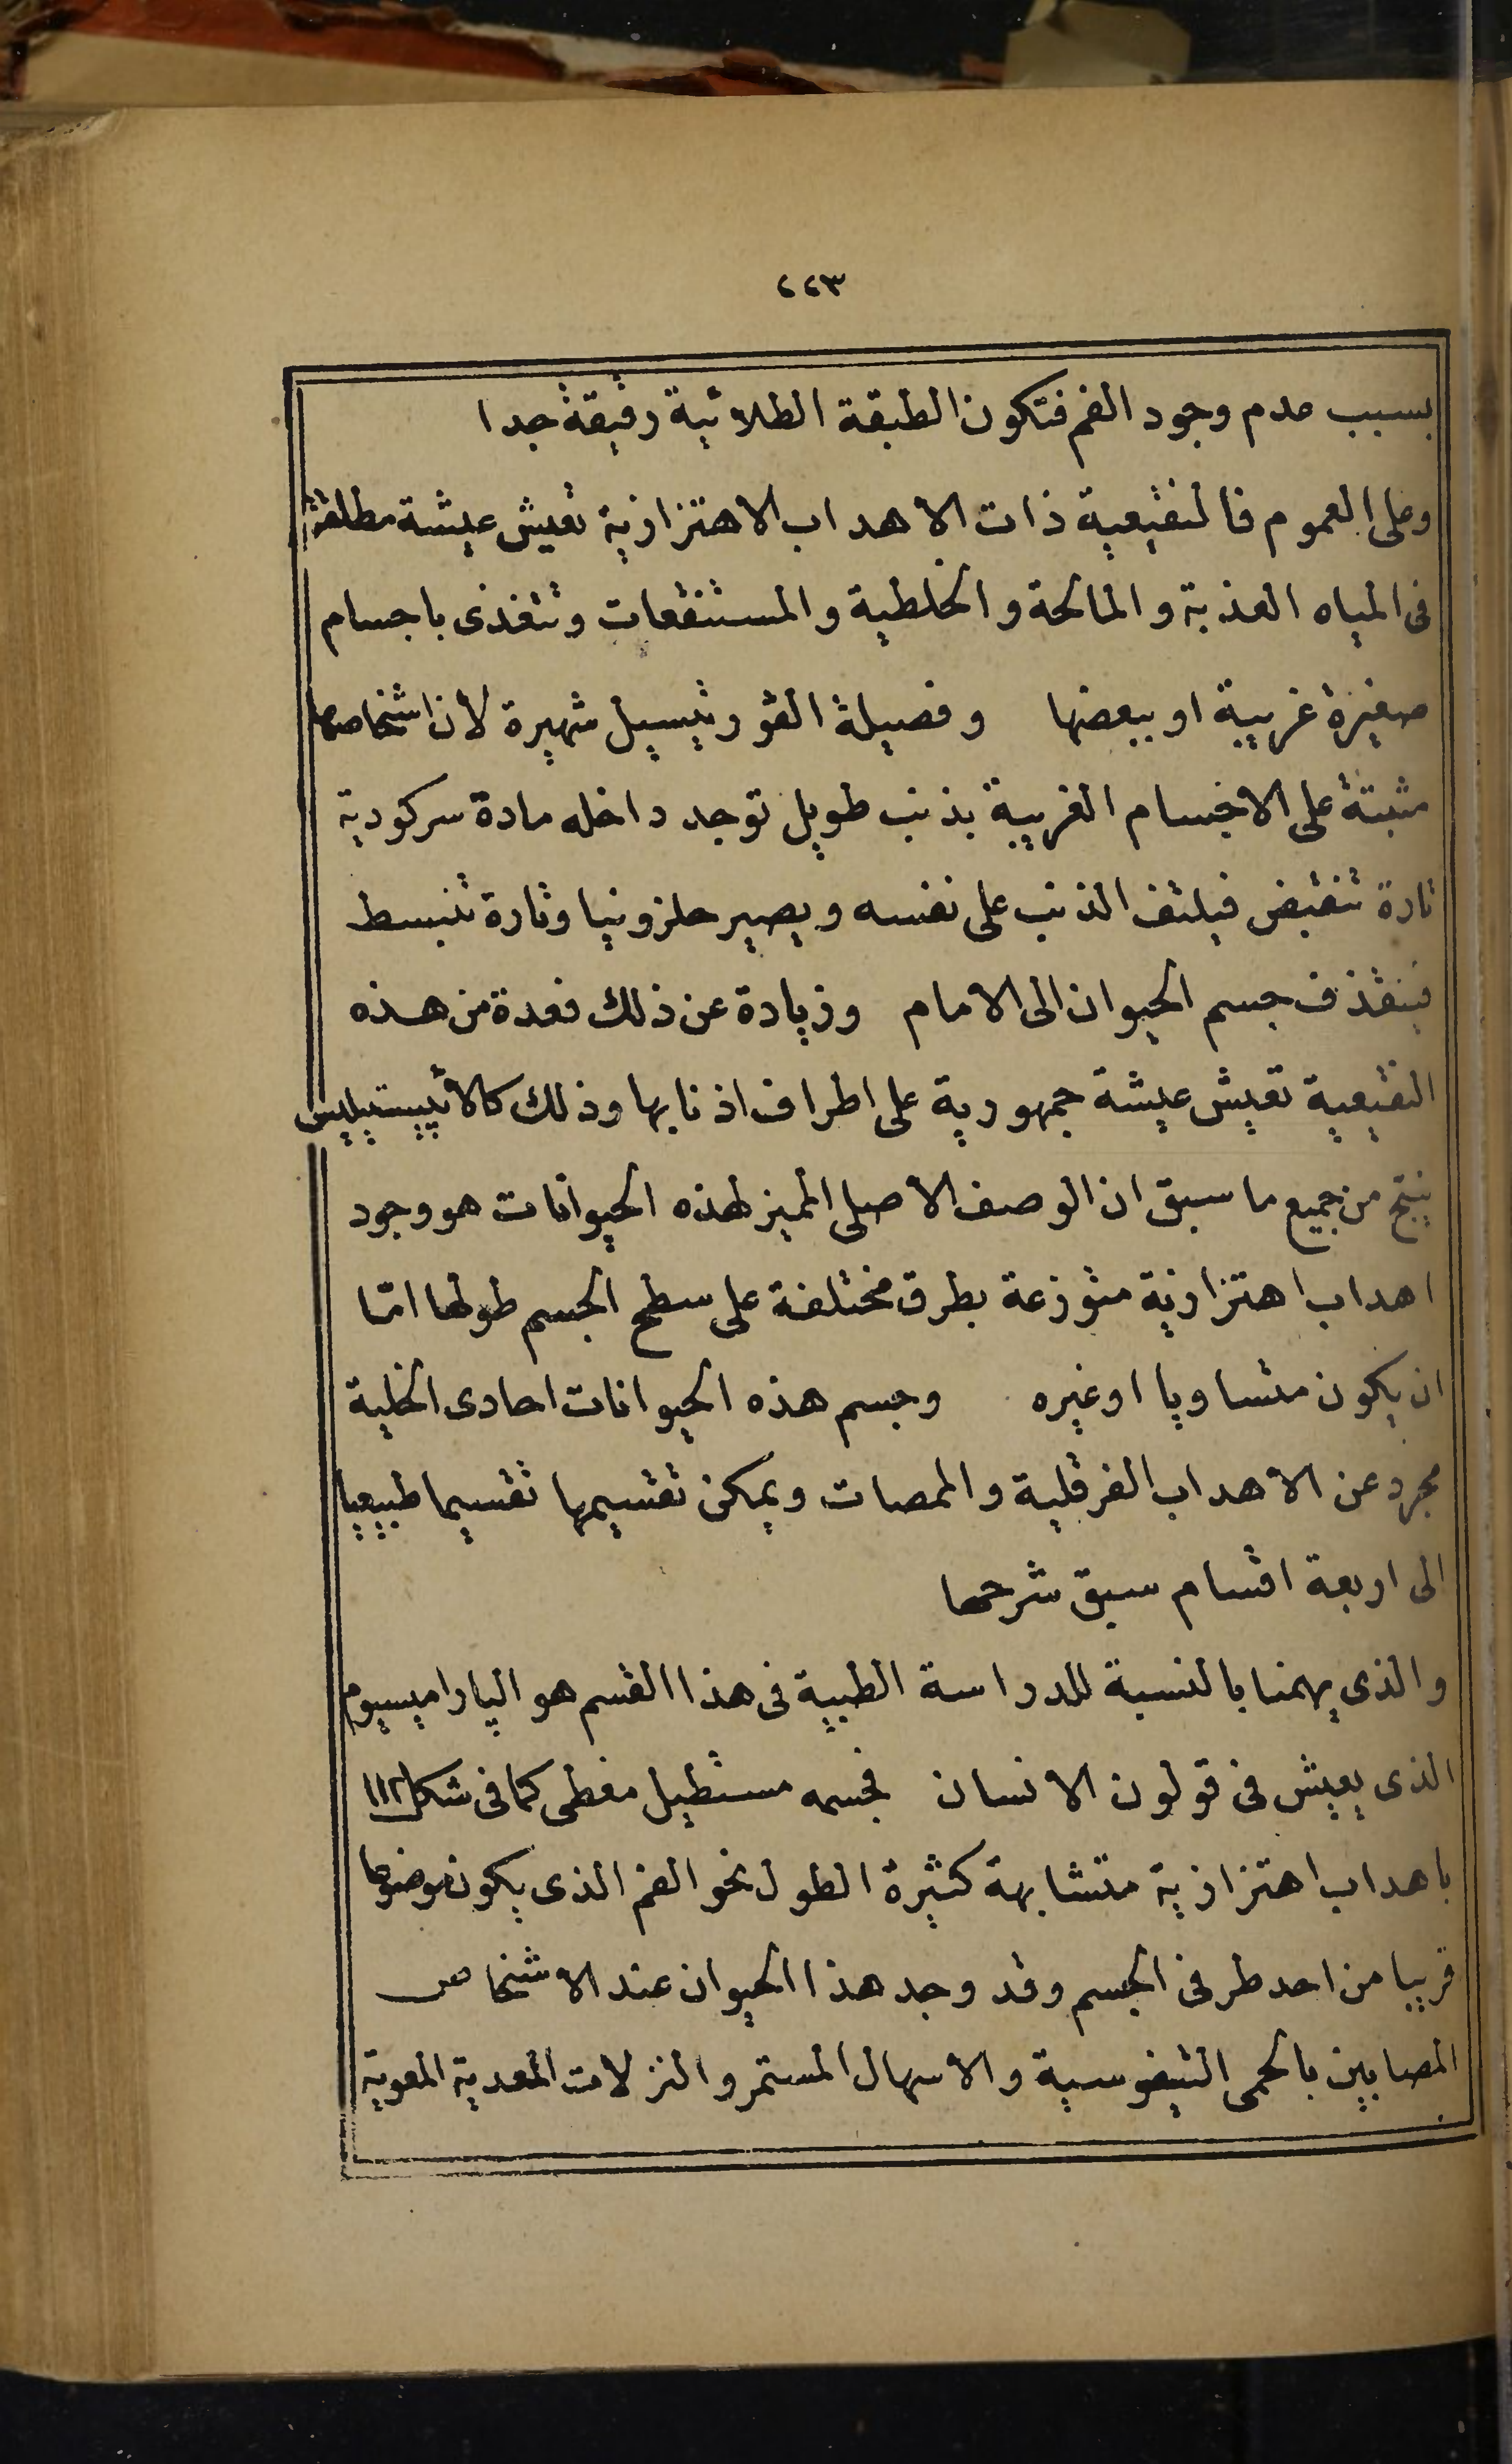 ٢٢٣
بسبب عدم وجود الفم فتكون الطبقة الطلائية رقيقة جدا
وعلى العموم فالنقيعية ذات الاهداب الاهتزازية تعيش عيشة مطلقة
فى المياه العذبة والمالحة والخلطية والمستنقعات وتتغذى باجسام
صغيرة غريبة او ببعضها وفصيلة الڤورتيسيل شهيرة لأن اشخاصها
مثبتة على الاجسام الغريبة بذنب طويل توجد داخله مادة سركودية
تارة تنقبض فيلتف الذنب على نفسه ويصير حلزونيا وتارة تنبسط
فينقذف جسم الحيوان الى الامام وزيادة عن ذلك فعدة من هذه
النقيعية تعيش عيشة جمهورية على اطراف اذنابها وذلك كالأپيستيليس
ينتج من جميع ما سبق ان الوصف الاصلى المميز لهذه الحيوانات هو وجود
اهداب اهتزازية متوزعة بطرق مختلفة على سطح الجسم طولها امّا
ان يكون متساويا او غيره وجسم هذه الحيوانات احادى الخلية
مجرد عن الاهداب الفرقلية والممصات ويمكن تقسيمها تقسيما طبيعيا
الى اربعة اقسام سبق شرحها
والذى يهمنا بالنسبة للدراسة الطبية فى هذا القسم هو الپاراميسيوم
الذى يعيش فى قولون الانسان فجسمه مستطيل مغطى كما فى شكل ١١٢
باهداب اهتزازية متشابهة كثيرة الطول نحو الفم الذى يكون موضوعا
قريبا من احد طرفى الجسم وقد وجد هذا الحيوان عند الاشخاص
المصابين بالحمى التيفوسية والاسهال المستمر والنزلات المعدية المعوية